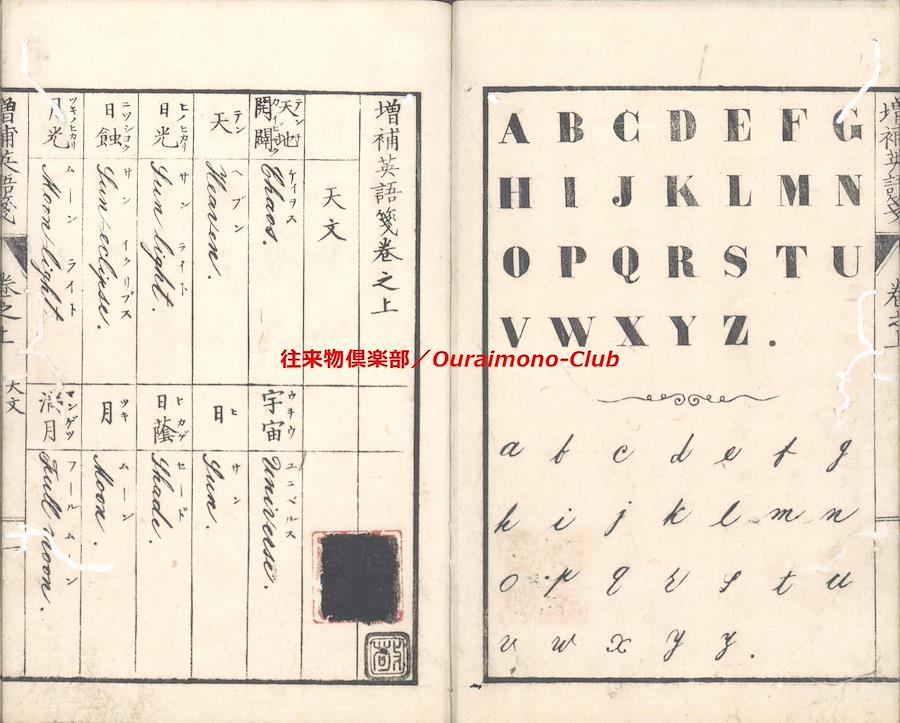 A B C D E F G
H I J K L M N
O P Q R S T U
V W X Y Z .
a b c d e f g
h i j k l m n
o p q r s t u
v w x y z .
増補英語箋巻之上
天文
天地開闢 ケイヲス Chaos.
宇宙 ウチウ Universe.
天 テン ヘブン Heaven.
日 ヒ サン Sun.
日光 ヒノヒカリ サンライト Sun light.
日蔭 ヒカゲ セード Shade.
日蝕 ニツショク サンイクリプス Sun-eclipse.
月 ツキ ムーン Moon.
月光 ツキノヒカリ ムーンライト Moon-light.
満月 マンゲツ フールムーン Full moon.
増補英語箋
巻之上
天文
往来物倶楽部／Ouraimono-Club